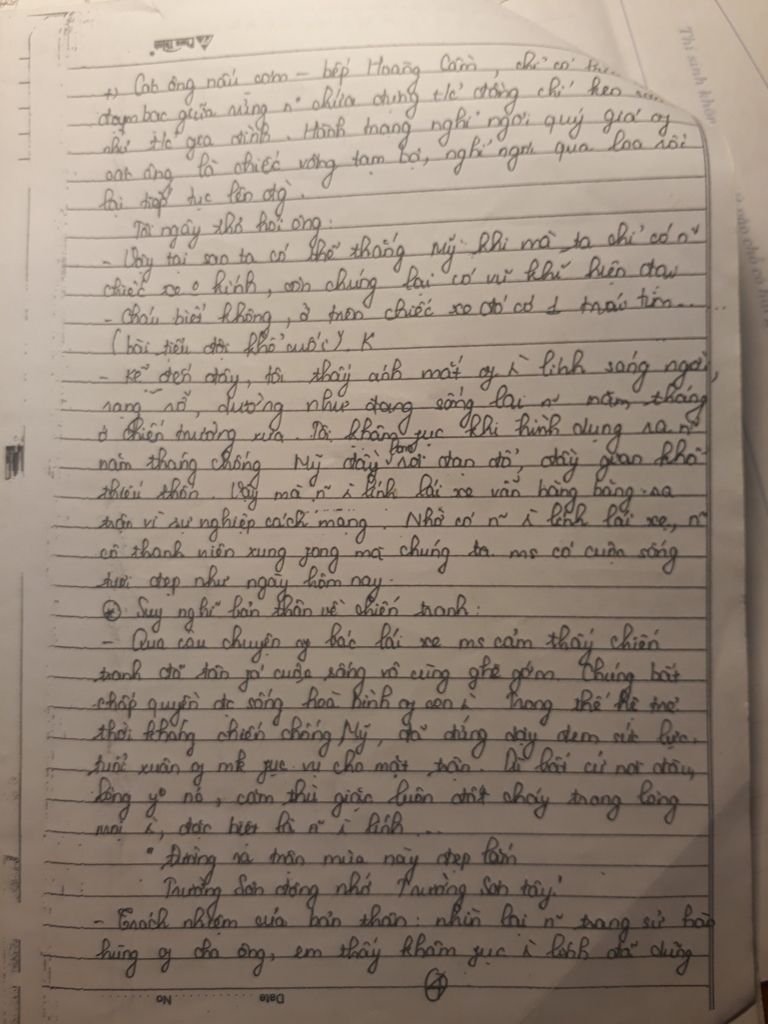 +) Các ông nấu cơm – bếp Hoàng Cầm, chỉ có
đạm bạc giữa rừng nº chứa chung t/c đồng chí keo
như t/c gia đình. Hành trang nghỉ ngơi quý giá of
các ông là chiếc võng tạm bợ, nghỉ ngơi qua loa rồi
lại tiếp tục lên đg.
Tôi ngây thơ hỏi ông:
- Vậy tại sao ta có thể thắng Mỹ khi mà ta chỉ có n~
chiếc xe o kính, còn chúng lại có vũ khí hiện đại
- Cháu biết không, ở trên chiếc xe đó có 1 trái tim....
(bài tiểu đội khổ cuối) K
- Kể đến đây, tôi thấy ánh mắt of i lính sáng ngời,
rạng rỡ, dường như đang sống lại n~ năm tháng
ở chiến trường xưa. Tôi khâm fục khi hình dung ra n~
năm tháng chống Mỹ đầy bom rơi đạn đổ, đầy gian khổ
thiếu thốn. Vậy mà n~ i lính lái xe vẫn băng băng ra
trận vì sự nghiệp cách mạng. Nhờ có n~ i lính lái xe, n~
cô thanh niên xung fong mà chúng ta ms có cuộc sống
tươi đẹp như ngày hôm nay.
* Suy nghĩ bản thân về chiến tranh:
- Qua câu chuyện of bác lái xe ms cảm thấy chiến
tranh đã tàn fá cuộc sống vô cùng ghê gớm. Chúng bất
chấp quyền đc sống hoà bình of con i. Trong thế hệ trẻ
thời kháng chiến chống Mỹ, đã đứng dậy đem sức lực,
tuổi xuân of mk fục vụ cho mặt trận. Dù bất cứ nơi đâu,
lòng yº nc, căm thù giặc luôn đốt cháy trong lòng
mọi i, đặc biệt là n~ i lính...
"Đường ra trận mùa này đẹp lắm
Trường Sơn đông nhớ Trường Sơn tây"
- Trách nhiệm của bản thân: nhìn lại n~ trang sử hào
hùng of cha ông, em thấy khâm fục i lính đã dũng
4
Date No
Thí sinh không